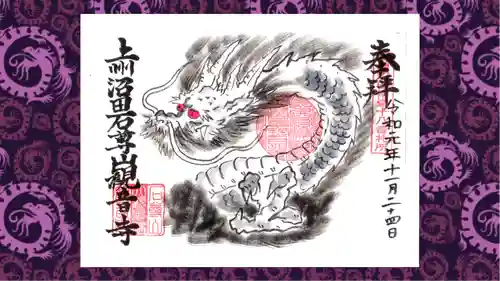 奉拝
令和元年十一月二十四日
上州沼田石尊山観音寺